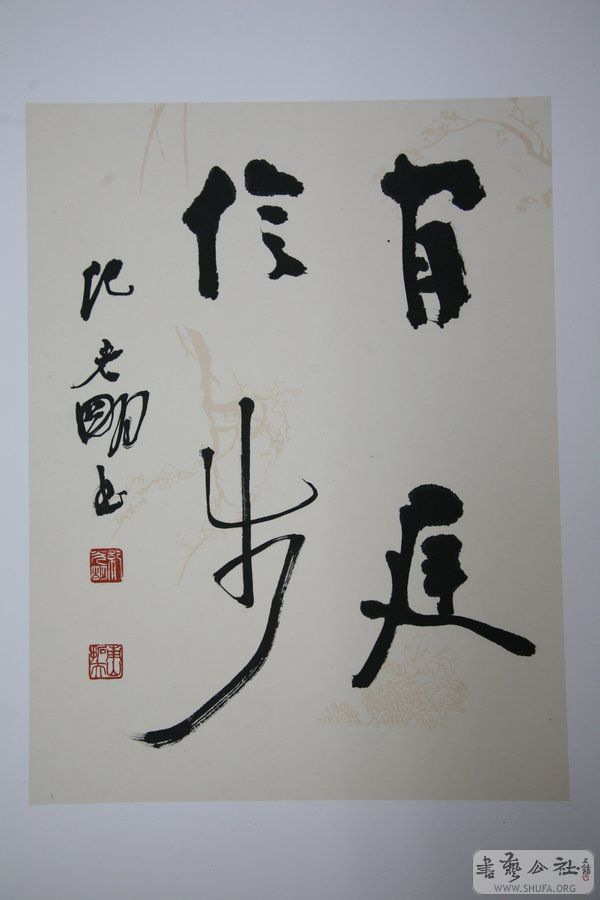 閒庭
信步
纪光明书
書藝公社
WWW.SHUFA.ORG